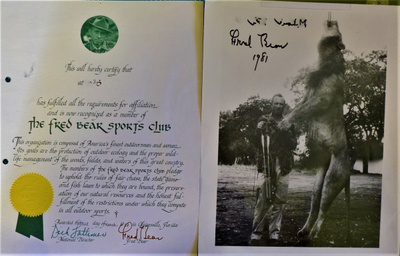 This will hereby certify that
has fulfilled all the requirements for affiliation
and is now recognized as a member of
The Fred Bear Sports Club
This organization is composed of America's finest outdoorsmen and women.
Its goals are the protection of outdoor ecology and the proper wild-
life management of the woods, fields, and waters of this great country.
The members of The Fred Bear Sports Club pledge
to uphold the rules of fair chase, the state game
and fish laws to which they are bound, the preservation
of our natural resources and the honest ful-
fillment of the restrictions under which they compete
in all outdoor sports.
Gainesville, Florida
National Director
Fred Bear
Fred Bear
Fred Bear
1981